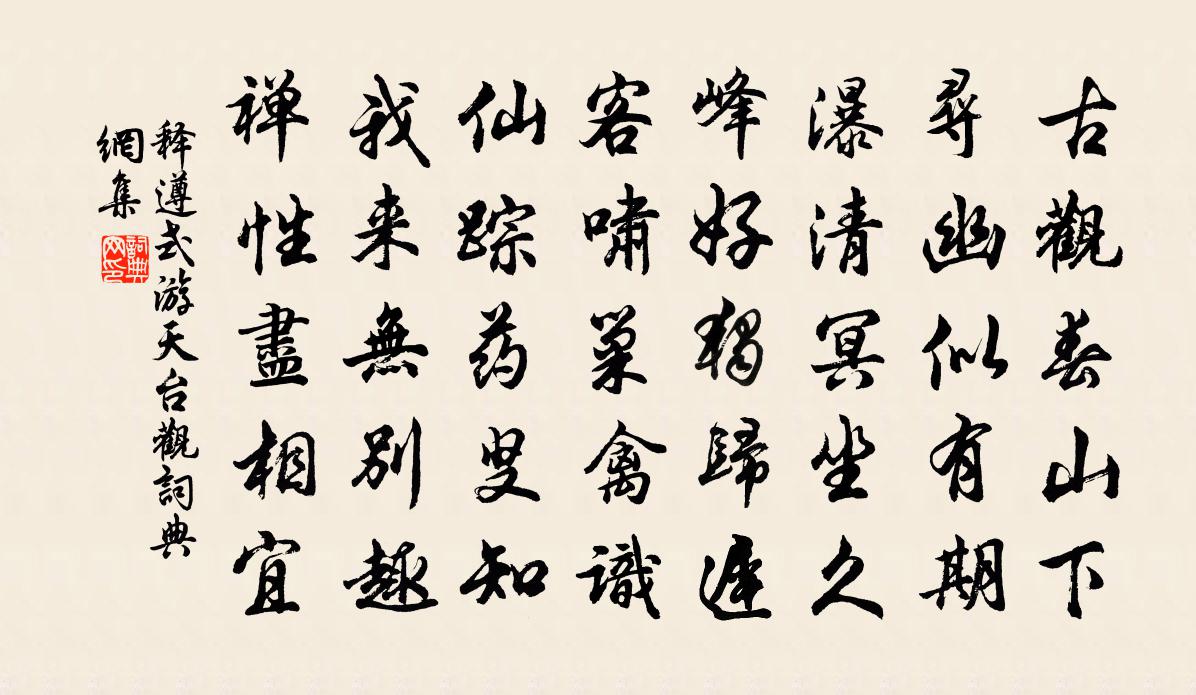 古觀春山下
尋幽似有期
瀑清冥坐久
峰好獨歸遲
客嘯巢禽識
仙踪药叟知
我来無別趣
禅性盡相宜
释遵式游天台觀詞典
網集
詞典
网印